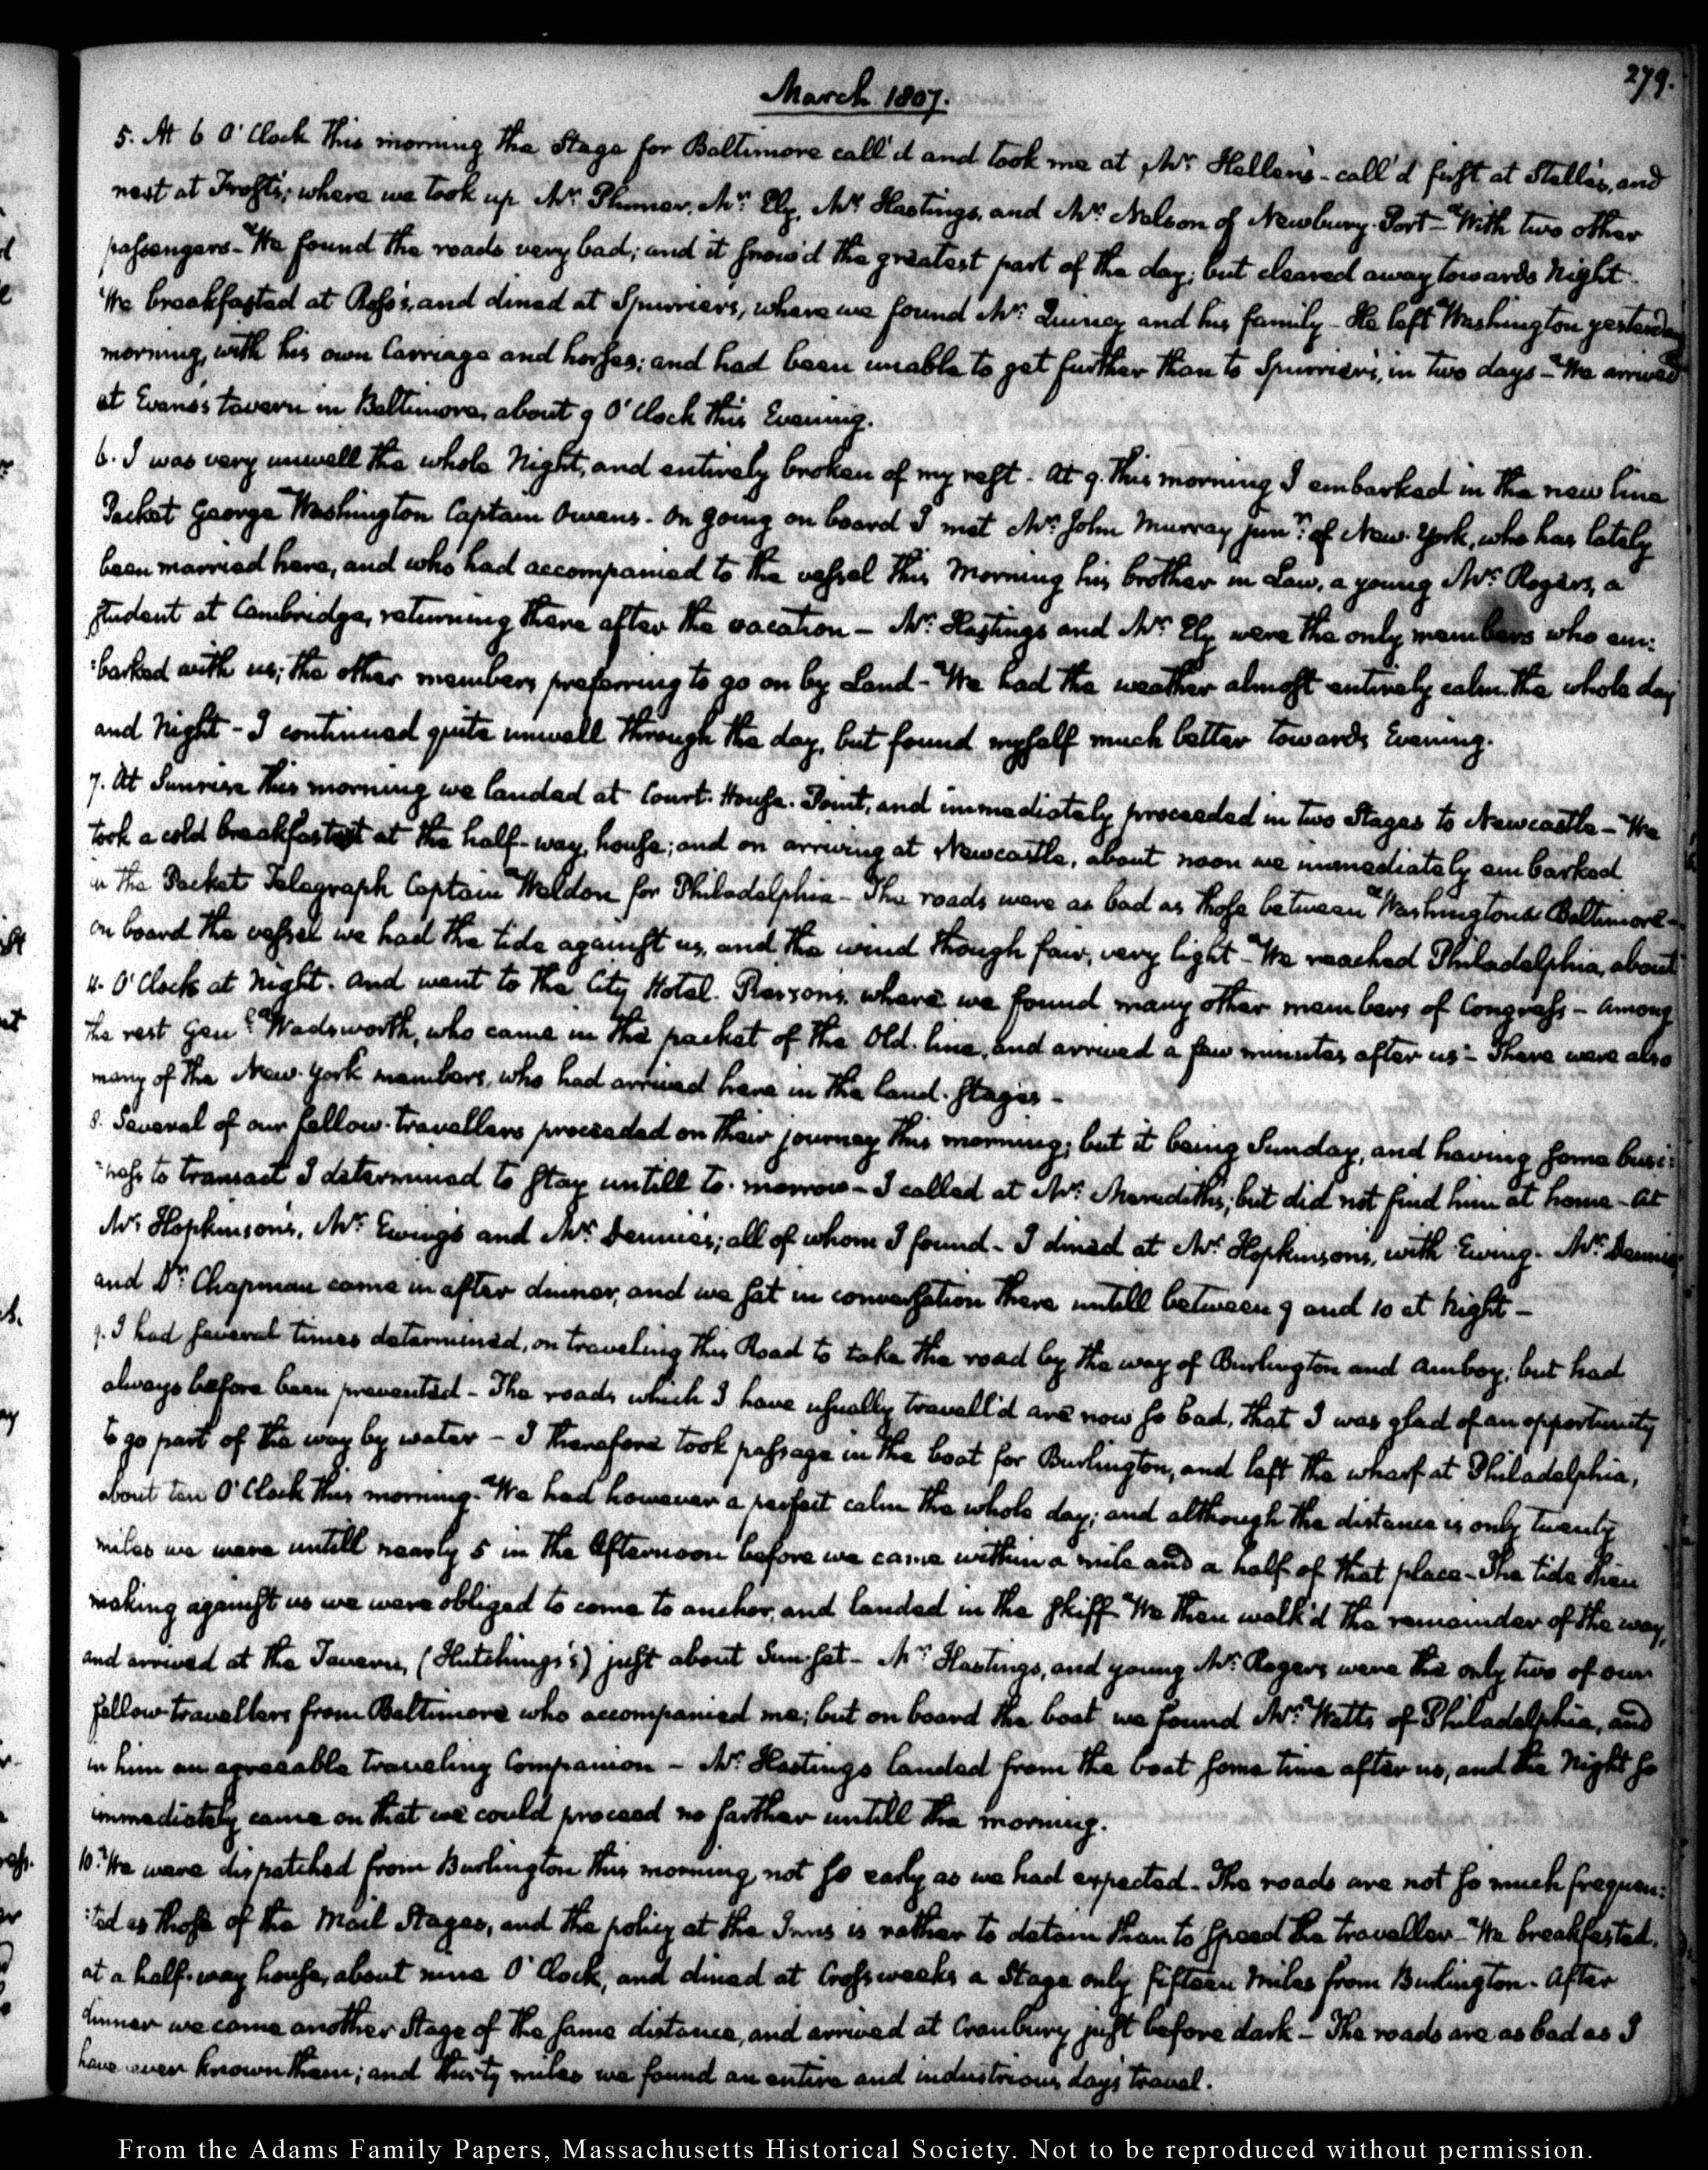 279.
March 1807.
5. At 6 O'Clock this morning the Stage for Baltimore call'd and took me at Mr. Hellen's - call'd first at Stelle's, and
next at Frost's; where we took up Mr. Plumer, Mr. Ely, Mr. Hastings, and Mr. Nelson of Newbury-Port - With two other
passengers - We found the roads very bad; and it snow'd the greatest part of the day; but cleared away towards Night.
We breakfasted at Ross's, and dined at Spurrier's, where we found Mr. Quincy and his family - He left Washington yesterday
morning, with his own Carriage and horses; and had been unable to get further than to Spurrier's, in two days - We arrived
at Evans's tavern in Baltimore, about 9 O'Clock this Evening.
6. I was very unwell the whole Night, and entirely broken of my rest - At 9. this morning I embarked in the new line
Packet George Washington Captain Owens - On going on board I met Mr. John Murray junr. of New-York, who has lately
been married here, and who had accompanied to the vessel this Morning his brother in Law, a young Mr. Rogers, a
student at Cambridge, returning there after the vacation - Mr. Hastings and Mr. Ely were the only members who em:
:barked with us; the other members preferring to go on by Land - We had the weather almost entirely calm the whole day
and Night - I continued quite unwell through the day, but found myself much better towards Evening.
7. At Sunrise this morning we landed at Court-House-Point, and immediately proceeded in two Stages to Newcastle - We
took a cold breakfast at the half-way house; and on arriving at Newcastle, about noon we immediately embarked
in the Packet Telegraph Captain Weldon for Philadelphia - The roads were as bad as those between Washington & Baltimore -
on board the vessel we had the tide against us, and the wind though fair, very light - We reached Philadelphia, about
4. O'Clock at Night. And went to the City Hotel. where we found many other members of Congress - Among
the rest Genl. Wadsworth, who came in the packet of the Old-line, and arrived a few minutes after us - There were also
many of the New-York members, who had arrived here in the land-stages -
8. Several of our fellow-travellers proceeded on their journey this morning; but it being Sunday, and having some busi:
:ness to transact I determined to stay untill to-morrow - I called at Mr. Meredith's; but did not find him at home - At
Mr. Hopkinson's, Mr. Ewing's and Mr. Dennie's; all of whom I found - I dined at Mr. Hopkinson's, with Ewing - Mr. Dennie
and Dr. Chapman came in after dinner, and we sat in conversation there untill between 9 and 10 at Night -
9. I had several times determined, on traveling this Road to take the road by the way of Burlington and Amboy; but had
always before been prevented - The roads which I have usually travell'd are now so bad, that I was glad of an opportunity
to go part of the way by water - I therefore took passage in the boat for Burlington, and left the wharf at Philadelphia,
about ten O'Clock this morning - We had however a perfect calm the whole day; and although the distance is only twenty
miles we were untill nearly 5 in the Afternoon before we came within a mile and a half of that place - The tide then
making against us we were obliged to come to anchor, and landed in the skiff - We then walk'd the remainder of the way,
and arrived at the Tavern, (Hutchings's) just about Sun-set - Mr. Hastings, and young Mr. Rogers were the only two of our
fellow-travellers from Baltimore who accompanied me; but on board the boat we found Mr. Watts of Philadelphia, and
in him an agreeable traveling Companion - Mr. Hastings landed from the boat some time after us, and the Night so
immediately came on that we could proceed no farther untill the morning.
10. We were dispatched from Burlington this morning, not so early as we had expected - The roads are not so much frequen:
:ted as those of the Mail Stages, and the policy at the Inns is rather to detain than to speed the traveller - We breakfasted,
at a half-way house, about nine O'Clock, and dined at Crossweeks a Stage only fifteen miles from Burlington - After
dinner we came another Stage of the same distance, and arrived at Cranbury, just before dark - The roads are as bad as I
have ever known them; and thirty miles we found an entire and industrious day's travel.
From the Adams Family Papers, Massachusetts Historical Society. Not to be reproduced without permission.